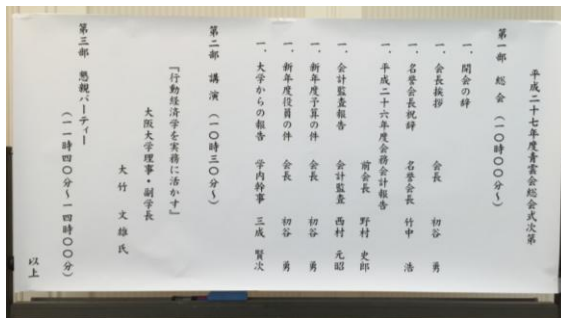 平成二十七年度青雲会総会式次第
第一部 総会(一〇時〇〇分~)
一、開会の辞
一、会長挨拶 会長 初谷 勇
一、名誉会長祝辞 名誉会長 竹中 浩
一、平成二十六年度会務会計報告
前会長 野村 史郎
一、会計監査報告 会計監査 西村 元昭
一、新年度予算の件 会長 初谷 勇
一、新年度役員の件 会長 初谷 勇
一、大学からの報告 学内幹事 三成 賢次
第二部 講演(一〇時三〇分~)
『行動経済学を実務に活かす』
大阪大学理事・副学長
大竹 文雄 氏
第三部 懇親パーティー
(一一時四〇分~一四時〇〇分)
以上